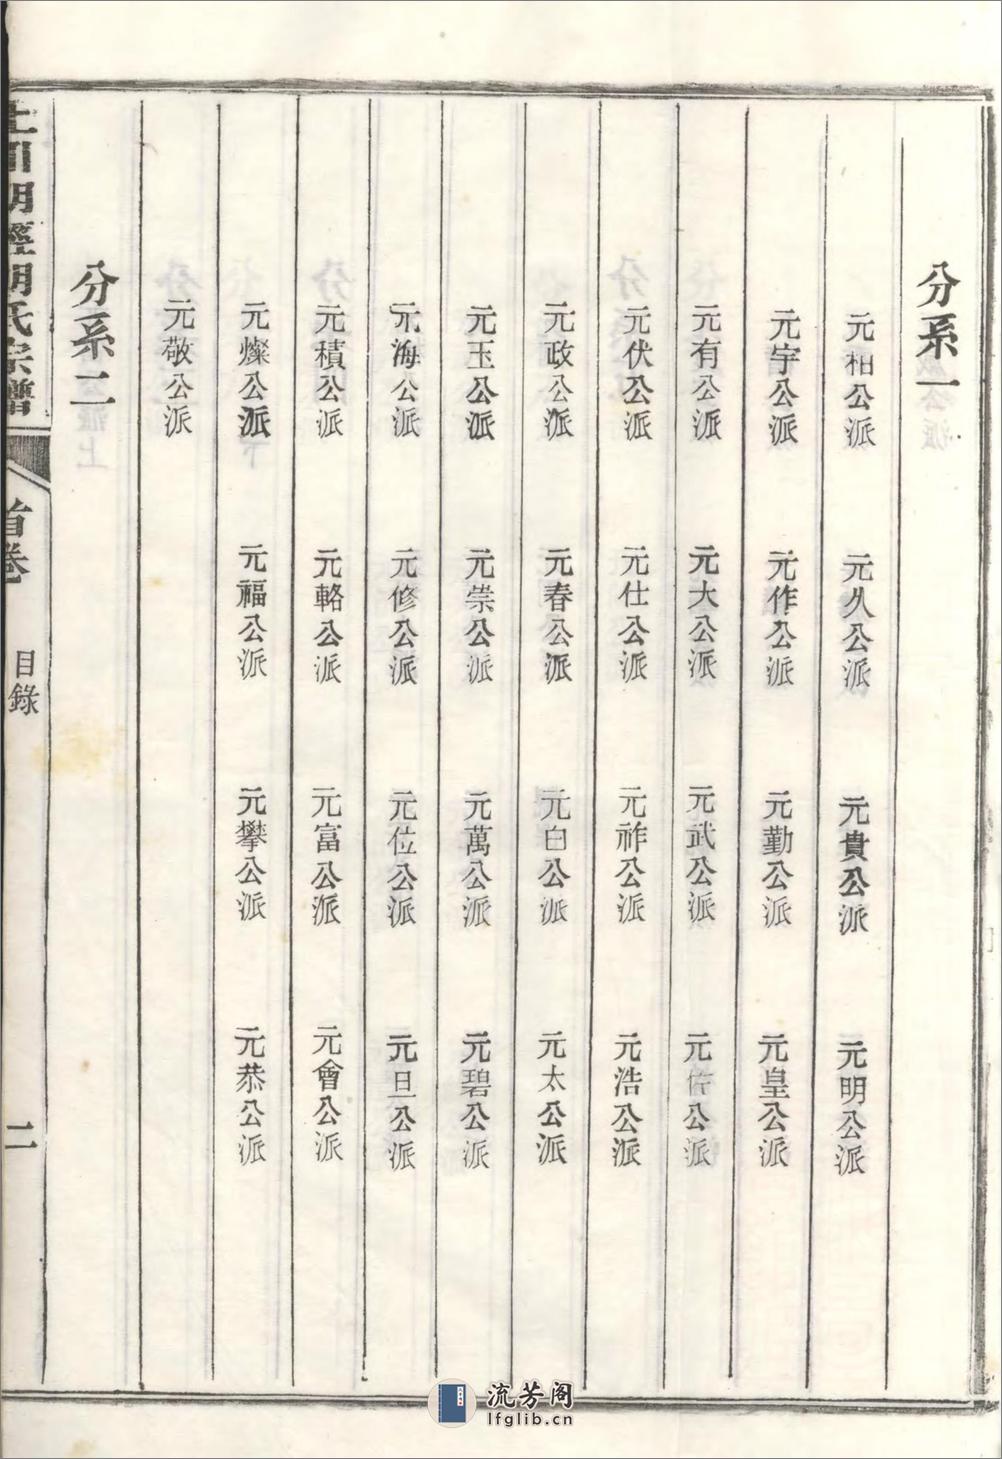 分系一
元相公派 元久公派 元貴公派 元明公派
元宇公派 元作公派 元勤公派 元皇公派
元有公派 元大公派 元武公派 元佐公派
元伏公派 元仕公派 元祚公派 元浩公派
元政公派 元春公派 元白公派 元太公派
元玉公派 元崇公派 元萬公派 元碧公派
元海公派 元修公派 元位公派 元旦公派
元積公派 元輅公派 元富公派 元會公派
元燦公派 元福公派 元攀公派 元恭公派
元敬公派
分系二
明經胡氏宗譜
首卷
目錄
二
流芳阁
lfglib.cn